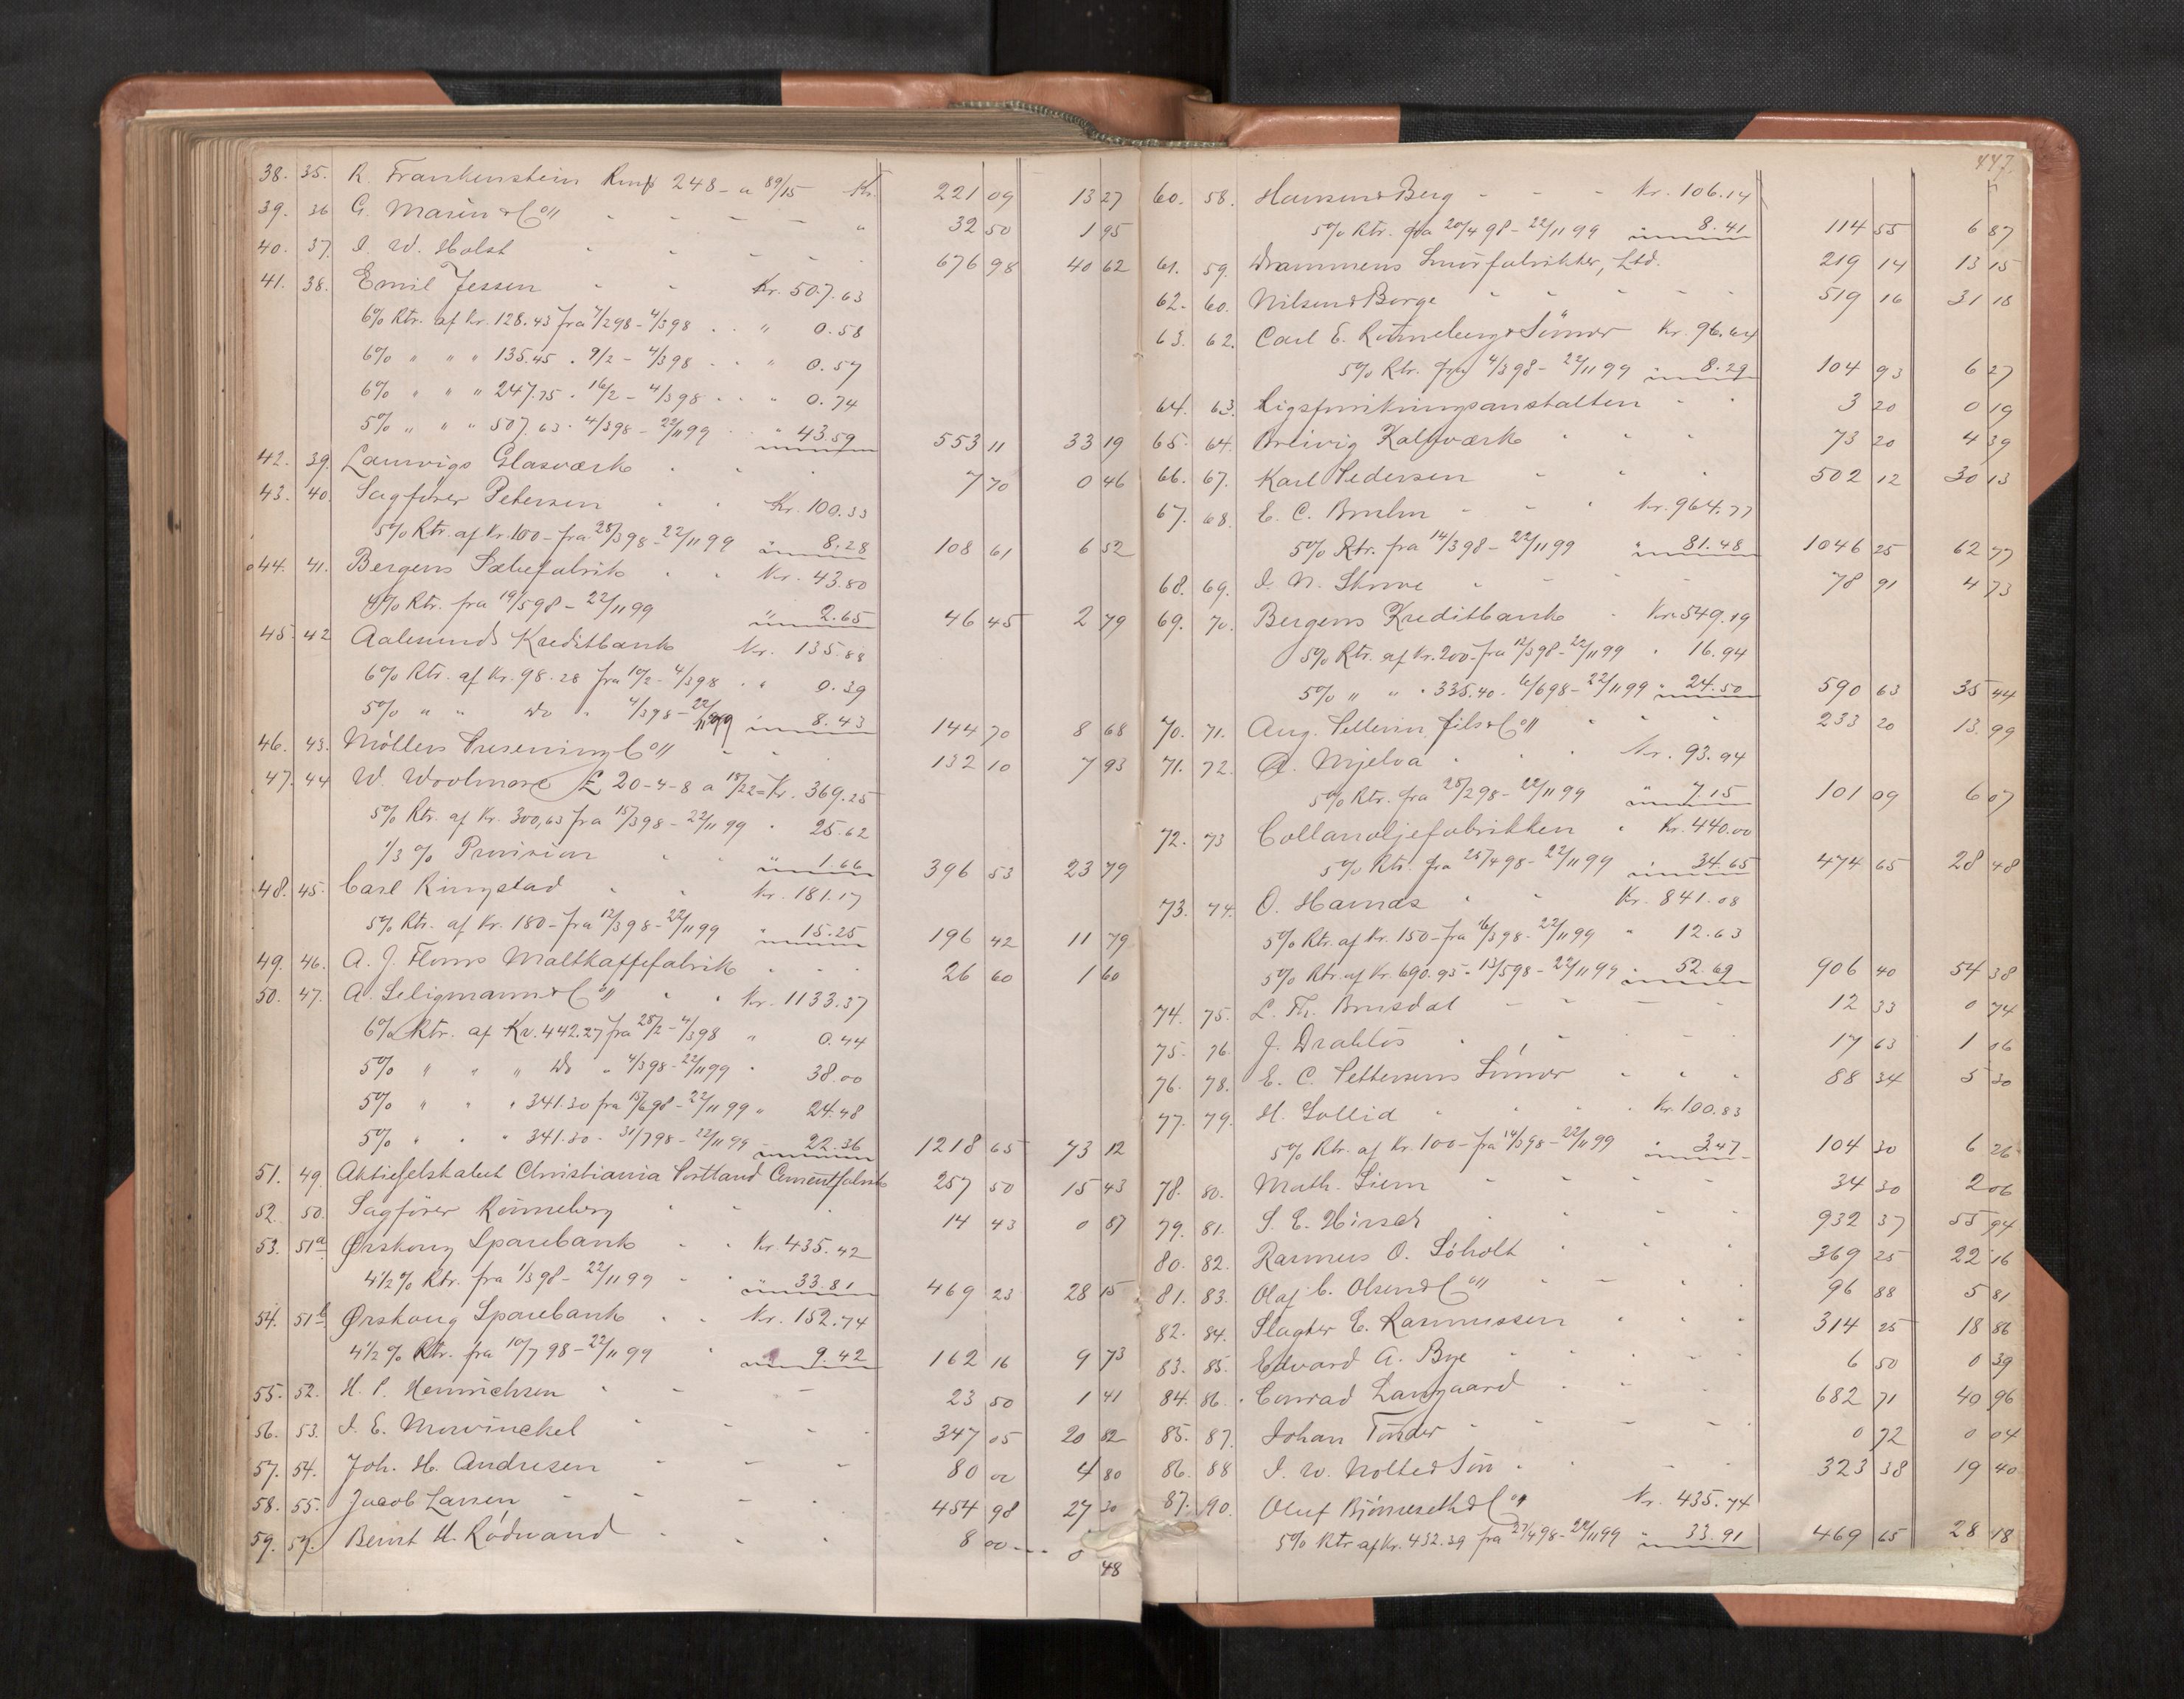 38. 35. R. Frankenstein Rmk 248 - a 89/15 Kr. 221 09 13 27
39. 36 G. Masin & Co. " 32 50 1 95
40. 37. I. W. Holst 676 98 40 62
41. 38. Emil Jessen Kr. 507.63
6% Rtr. af Kr. 128.43 fra 7/2 98 - 4/3 98 " 0.58
6% " " " 135.45 " 9/2 - 4/3 98 " 0.57
6% " " " 247.75 " 16/2 - 4/3 98 " 0.74
5% " " " 507.63 " 4/3 98 - 22/11 99 " 43.59 553 11 33 19
42. 39. Laurvigs Glasværk 7 70 0 46
43. 40. Sagfører Petersen Kr. 100.33
5% Rtr. af Kr. 100 - fra 28/3 98 - 22/11 99 " 8.28 108 61 6 52
44. 41. Bergens Sæbefabrik Kr. 43.80
4% Rtr. fra 19/5 98 - 22/11 99 " 2.65 46 45 2 79
45. 42 Aalesunds Kreditbank Kr. 135.88
6% Rtr. af Kr. 98.28 fra 10/2 - 4/3 98 " 0.39
5% " " do " 4/3 98 - 22/11 99 " 8.43 144 70 8 68
46. 43. Møllers Presenning Co. 132 10 7 93
47. 44 W. Woolmore £ 20-4-8 a 18/22 = Kr. 369.25
5% Rtr. af Kr. 300,63 fra 15/3 98 - 22/11 99 " 25.62
1/3 % Provision " 1.66 396 53 23 79
48. 45. Carl Ringstad Kr. 181.17
5% Rtr. af Kr. 180 - fra 12/3 98 - 22/11 99 " 15.25 196 42 11 79
49. 46. A. J. Floms Maltkaffefabrik 26 60 1 60
50. 47. A. Seligmann & Co. Kr. 1133.37
6% Rtr. af Kr. 442.27 fra 28/2 - 4/3 98 " 0.44
5% " " " do " 4/3 98 - 22/11 99 " 38.00
5% " " " 341.30 fra 15/6 98 - 22/11 99 " 24.48
5% " " " 341.30 - 31/7 98 - 22/11 99 - 22.36 1218 65 73 12
51. 49. Aktieselskabet Christiania Portland Cementfabrik 257 50 15 43
52. 50. Sagfører Rønneberg 14 43 0 87
53. 51a Ørskoug Sparebank Kr. 435.42
4½% Rtr. fra 1/3 98 - 22/11 99 " 33.81 469 23 28 15
54. 51b Ørskoug Sparebank Kr. 152.74
4½% Rtr. fra 10/7 98 - 22/11 99 " 9.42 162 16 9 73
55. 52. H. P. Henrichsen 23 50 1 41
56. 53. I. E. Mowinckel 347 05 20 82
57. 54. Joh. H. Andresen 80 00 4 80
58. 55. Jacob Larsen 454 98 27 30
59. 57. Bernt H. Rødvand 8 00 0 48
447.
60. 58. Hansen & Berg Kr. 106.14
5% Rtr. fra 20/4 98 - 22/11 99 " 8.41 114 55 6 87
61. 59. Drammens Smørfabrikker, Ltd. 219 14 13 15
62. 60. Nilsen & Borge 519 16 31 18
63. 62. Carl E. Rønneberg & Sønner Kr. 96.64
5% Rtr. fra 4/3 98 - 22/11 99 " 8.29 104 93 6 27
64. 63. Ligsynitningsanstalten 3 20 0 19
65. 64. Breivig Kalkværk 73 20 4 39
66. 67. Karl Pedersen 502 12 30 13
67. 68. E. C. Bruhn Kr. 964.77
5% Rtr. fra 14/3 98 - 22/11 99 " 81.48 1046 25 62 77
68. 69. I. N. Skrove 78 91 4 73
69. 70. Bergens Kreditbank Kr. 549.19
5% Rtr. af Kr. 200 - fra 12/3 98 - 22/11 99 " 16.94
5% " " " 335.40 - 6/6 98 - 22/11 99 " 24.50 590 63 35 44
70. 71. Aug. Pellerin fils & Co. 233 20 13 99
71. 72. A. Mjelva Kr. 93.94
5% Rtr. fra 28/2 98 - 22/11 99 " 7.15 101 09 6 07
72. 73 Collanoljefabrikken Kr. 440.00
5% Rtr. fra 25/4 98 - 22/11 99 " 34.65 474 65 28 48
73. 74. O. Harnæs Kr. 841.08
5% Rtr. af Kr. 150 - fra 16/3 98 - 22/11 99 " 12.63
5% Rtr. af Kr. 690.95 - 13/5 98 - 22/11 99 " 52.69 906 40 54 38
74. 75. L. Th. Brusdal 12 33 0 74
75. 76. J. Drabløs 17 63 1 06
76. 78. E. C. Pettersens Sønner 88 34 5 30
77. 79. H. Sollid Kr. 100.83
5% Rtr. af Kr. 100 - fra 14/3 98 - 22/11 99 " 3.47 104 30 6 26
78. 80. Math. Siem 34 30 2 06
79. 81. S. E. Hirsch 932 37 55 94
80. 82. Rasmus O. Søholt 369 25 22 16
81. 83. Olaf C. Olsen & Co. 96 88 5 81
82. 84. Slagter E. Rasmussen 314 25 18 86
83. 85. Edvard A. Bye 6 50 0 39
84. 86. Conrad Langaard 682 71 40 96
85. 87. Johan Tønder 0 72 0 04
86. 88 I. W. Nolte & Søn 323 38 19 40
87. 90. Oluf Bjørneseth & Co. Kr. 435.74
5% Rtr. af Kr. 432.39 fra 27/4 98 - 22/11 99 " 33.91 469 65 28 18